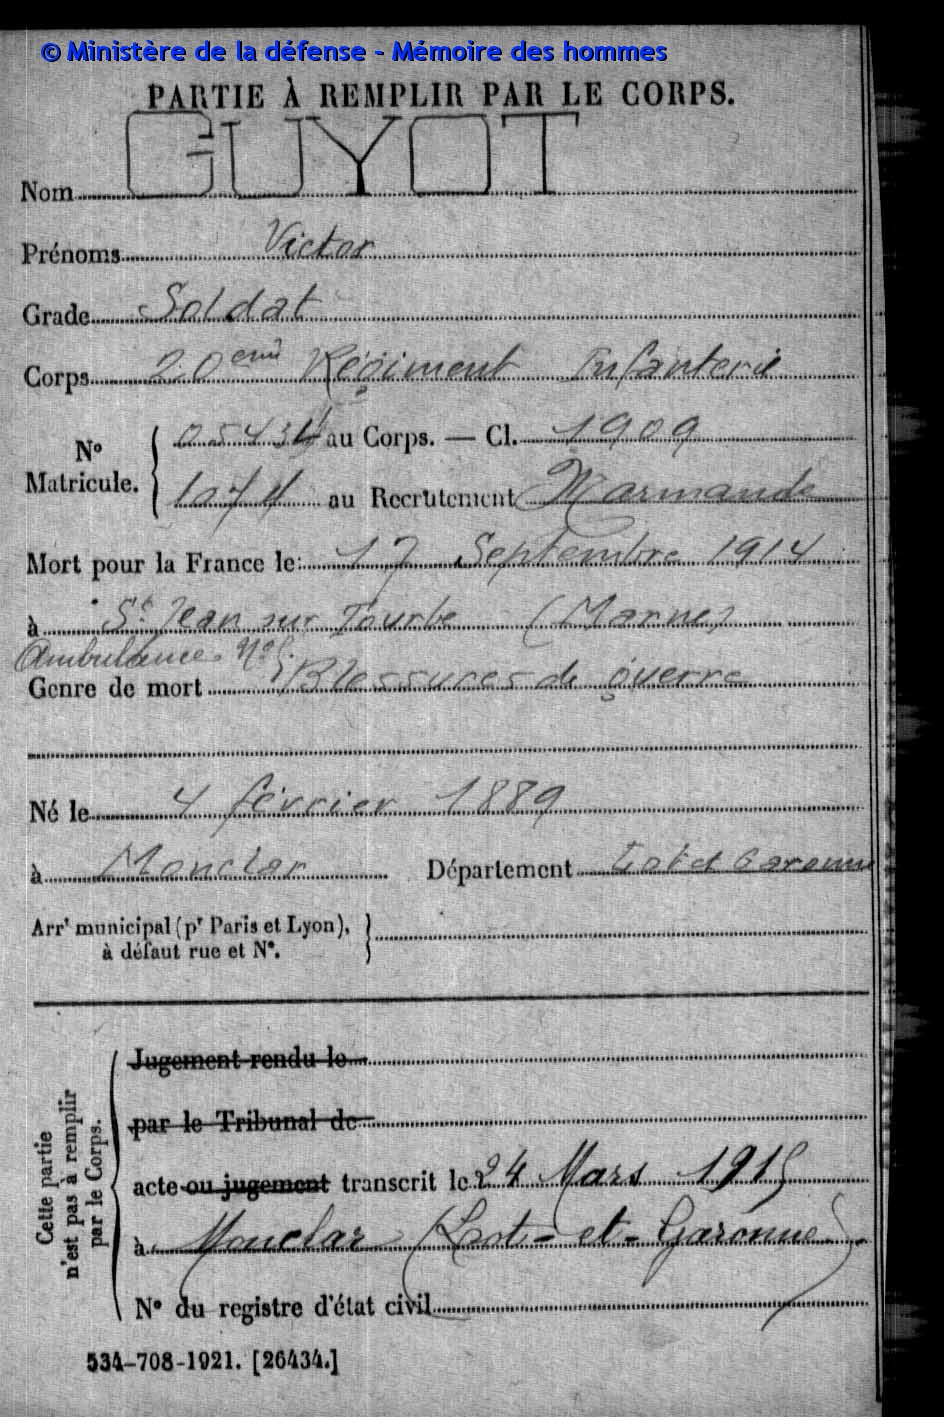 © Ministère de la défense - Mémoire des hommes
PARTIE À REMPLIR PAR LE CORPS.
Nom GUYOT
Prénoms Victor
Grade Soldat
Corps 20eme Régiment Infanterie
N° Matricule. 05434 au Corps. — Cl. 1909
1074 au Recrutement Marmande
Mort pour la France le 17 Septembre 1914
à St Jean sur Tourbe (Marne)
Ambulance N° 5.
Genre de mort Blessures de guerre
Né le 4 février 1889
à Monclar Département Lot et Garonne
Arrt municipal (pr Paris et Lyon),
à défaut rue et N°.
Cette partie n'est pas à remplir par le Corps.
Jugement rendu le
par le Tribunal de
acte ou jugement transcrit le 24 Mars 1915
à Monclar (Lot-et-Garonne)
N° du registre d'état civil
534-708-1921. [26434.]